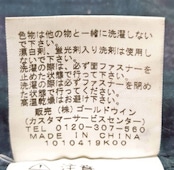 色物は他の物と一緒に洗濯しない
で下さい。
漂白剤、蛍光剤入り洗剤は使用し
ないで下さい。
洗濯の際は、必ず面ファスナーを
止めた状態で行って下さい。
洗濯の際は、必ずファスナーを閉め
た状態で行って下さい。
高温乾燥はお避け下さい。
販売 (株)ゴールドウイン
(カスタマーサービスセンター)
TEL 0120-307-560
MADE IN CHINA
1010419K00